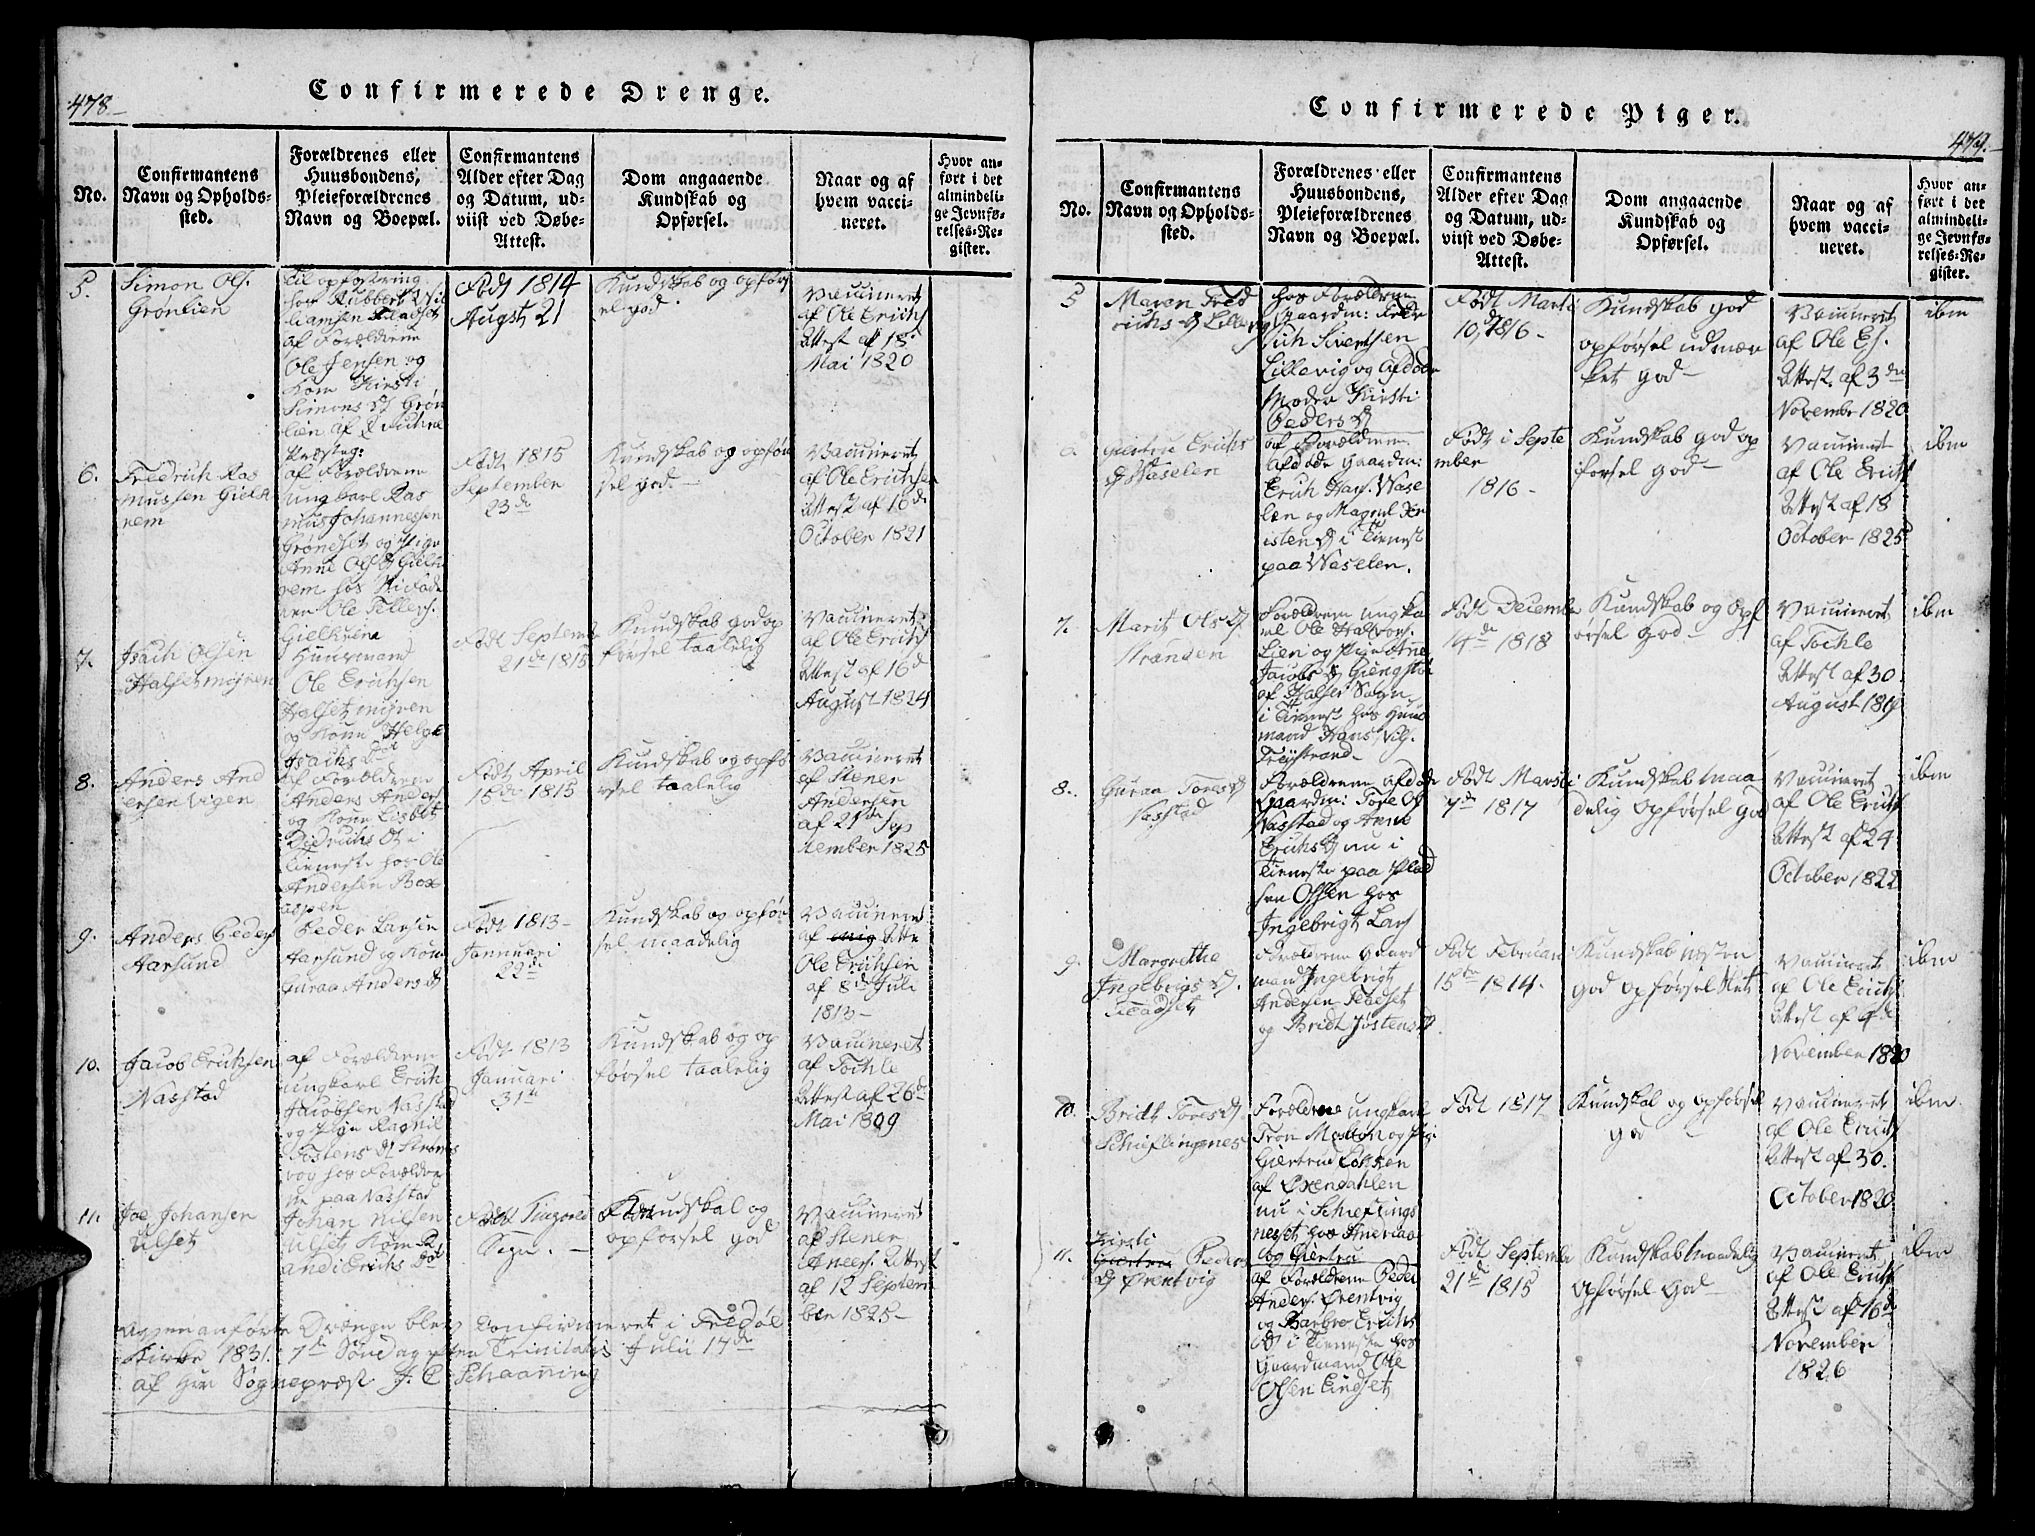 478
Confirmerede Drenge.
No.
Confirmantens
Navn og Opholds-
sted.
Forældrenes eller
Huusbondens,
Pleieforældrenes
Navn og Boepæl.
Confirmantens
Alder efter Dag
og Datum, ud-
viist ved Døbe-
Attest.
Dom angaaende
Kundskab og
Opførsel.
Naar og af
hvem vacci-
neret.
Hvor an-
ført i det
almindeli-
ge Jevnfø-
relses-Re-
gister.
5.
Simon Ols.
Grønlien
Til opfostring
hos Rubbert Wil
liamsen
af Forældrene
Ole Jensen og
Kone Kirsti
Simons D Grøn
lien af
Præsteg:
Født 1814
Augst 21
Kundskab og opførs
el god
Vaccineret
af Ole Erichs
Attest af 18
Mai 1820
6.
Fredrich Ras
mussen Gielh
nem
af Forældrene
ungkarl Ras
mus Johannessen
Grøndset og Pige
Anne Ols D Gielh
nem hos
Ole Tellefs.
Gielhnem
Født 1815
September
23de
Kundskab og opfør
sel god
Vaccineret
af Ole Erichsen
Attest af 16d
October 1821
7.
Isach Olsen
Halsetmøyren
Huusmand
Ole Erichsen
Halset møyren
og Kone Helge
Isachs Dot
Født Septemb
21de 1815
Kundskab god op
førsel taalelig
Vaccineret
af Ole Erichs
Attest af 16d
August 1824
8.
Anders And
ersen Vigen
af Forældrene
Anders Anders
og Kone Lisbet
Didrichs D i
Tieneste hos Ole
Andersen Box
aspen
Født April
15de 1815
Kundskab og opfø
rsel taalelig
Vaccineret
af Stener
Andersen
af 21de Sep
tember 1825
9.
Anders Peders
Aarsund
Peder Larsen
Aarsund og Kone
Guraa Anders D
Født 1813
Januari
22de
Kundskab og opfør
sel maadelig
Vaccineret
af mig Atte
Ole Erichsen
af 8de Juli
1813
10.
Jacob Erichsen
Nasstad
af Forældrene
ungkarl Erich
Jacobsen Nasstad
og Pige Ragnil
Tostens D Strøms
vog hos Forældre
ne paa Nasstad
Født 1813
Januari
31te
Kundskab og op
førsel taalelig
Vaccineret
af Tochle
Attest af 26de
Mai 1809
11.
Joe Johansen
Ulset
Johan Nilsen
Ulset Kone R
andi Erichs Dot
Født Tingvold
Sogn.
Kundskab og
opførsel god
Vaccineret
af Stener
Anders. Attest
af 12 Septem
ber 1825
Ovenanførte Drænge blev Confirmeret i Fredøl
Kirke 1831. 7de Søndag efter Trinitatis Julii 17de
af Herr Sognepræst J. C. Schaanning
479.
Confirmerede Piger.
No.
Confirmantens
Navn og Opholds-
sted.
Forældrenes eller
Huusbondens,
Pleieforældrenes
Navn og Boepæl.
Confirmantens
Alder efter Dag
og Datum, ud-
viist ved Døbe-
Attest.
Dom angaaende
Kundskab og
Opførsel.
Naar og af
hvem vacci-
neret.
Hvor an-
ført i det
almindeli-
ge Jevnfø-
relses-Re-
gister.
5
Maren Fred
richs D Lillevig
hos Forældrene
Gaardm: Fred
rich Sivertsen
Lillevig og afdøde
Moder Kirsti
Peders D
Født Marti
10d 1816
Kundskab god
opførsel udmær
ket god
Vaccineret
af Ole Es.
Attest af 3die
November 1820
ibm
6
Giertru Erichs
D Waselen
af Forældrene
Afdøde Gaardm:
Erich Hans. Wase
len og Magnil Kr
istens D i Tienest
paa Waselen.
Født i Septe
mber
1816
Kundskab god op
førsel god
Vaccineret
af Ole Erichs
Attest af 18
October 1825
ibm
7.
Marit Ols D.
Stranden
Forældrene ungka
rl Ole Halvors.
Lien og Pige Anne
Jacobs D Giengstøe
af Halse Sogn
i Tienest hos Huus
mand Hans Nils.
Trøystrand
Født Decembe
14de 1818
Kundskab og Opf
ørsel God
Vaccineret
af Tochle
Attest af 30
August 1819
ibm
8.
Guraa Tores D
Nasstad
Forældrene afdøde
Gaardm: Tore Ols
Nasstad og Anne
Erichs D nu i
Tieneste paa Plad
sen Ossen hos
Ingebrigt Lars
Født Marsti
7de 1817
Kundskab maa
delig Opførsel god
Vaccineret
af Ole Erichs
Attest af 24
October 1822
ibm
9
Margrethe
Ingebrigs D.
Forældrene Gaard
mand Ingebrigt
Andersen
og Bridt Jøstens D
Født Februari
15de 1814
Kundskab næsten
god opførsel
Vaccineret
af Ole Erichs
Attest af 4de
November 1820
ibm
10.
Bridt Tores D
Schieflingsnes
Forældrene ungkarl
Tron Mosbøn og Pige
Giertrud
af Øxendahlen
nu i Schieflings
nesset hos Andreas
og Giertru
Født 1817
Kundskab og opførsel
god
Vaccineret
af Ole Erichs
Attest af 30.
October 1820
ibm
11.
Kirsti
Giertru Peders
D Ørentvig
af Forældrene Peder
Anders. Ørentvig
og Barbro Erichs
D i Tieneste hos
Gaardmand Ole
Olsen Eindset
Født Septembe
21de 1815
Kundskab maadelig
Opførsel God
Vaccineret
af Ole Erichs
Attest af 16de
November
1826
ibm